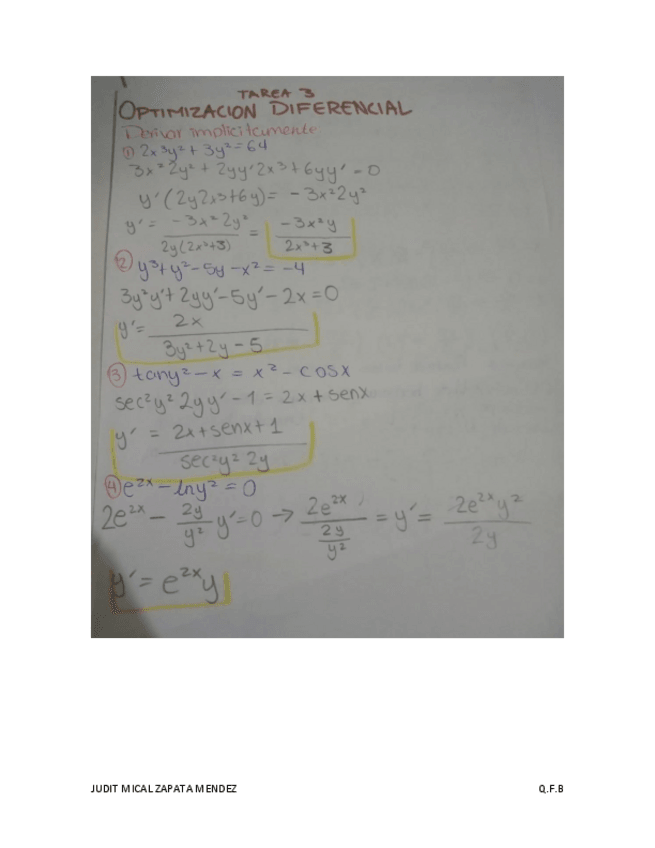 TAREA 3
OPTIMIZACION DIFERENCIAL
Derivar implicitamente
① 2x³y² + 3y² = 64
3x²2y² + 2yy'2x³ + 6yy' = 0
y'(2y2x³+6y) = -3x²2y²
y' = -3x²2y² / 2y(2x³+3) = -3x²y / 2x³+3
② y³+y²-5y-x² = -4
3y²y'+2yy'-5y'-2x=0
y' = 2x / 3y²+2y-5
③ tany²-x = x²-cosx
sec²y² 2yy' -1 = 2x+senx
y' = 2x+senx+1 / sec²y² 2y
④ e²ˣ - lny² = 0
2e²ˣ - 2y/y² y' = 0 → 2e²ˣ / 2y/y² = y' = 2e²ˣy² / 2y
y' = e²ˣy
JUDIT MICAL ZAPATA MENDEZ Q.F.B